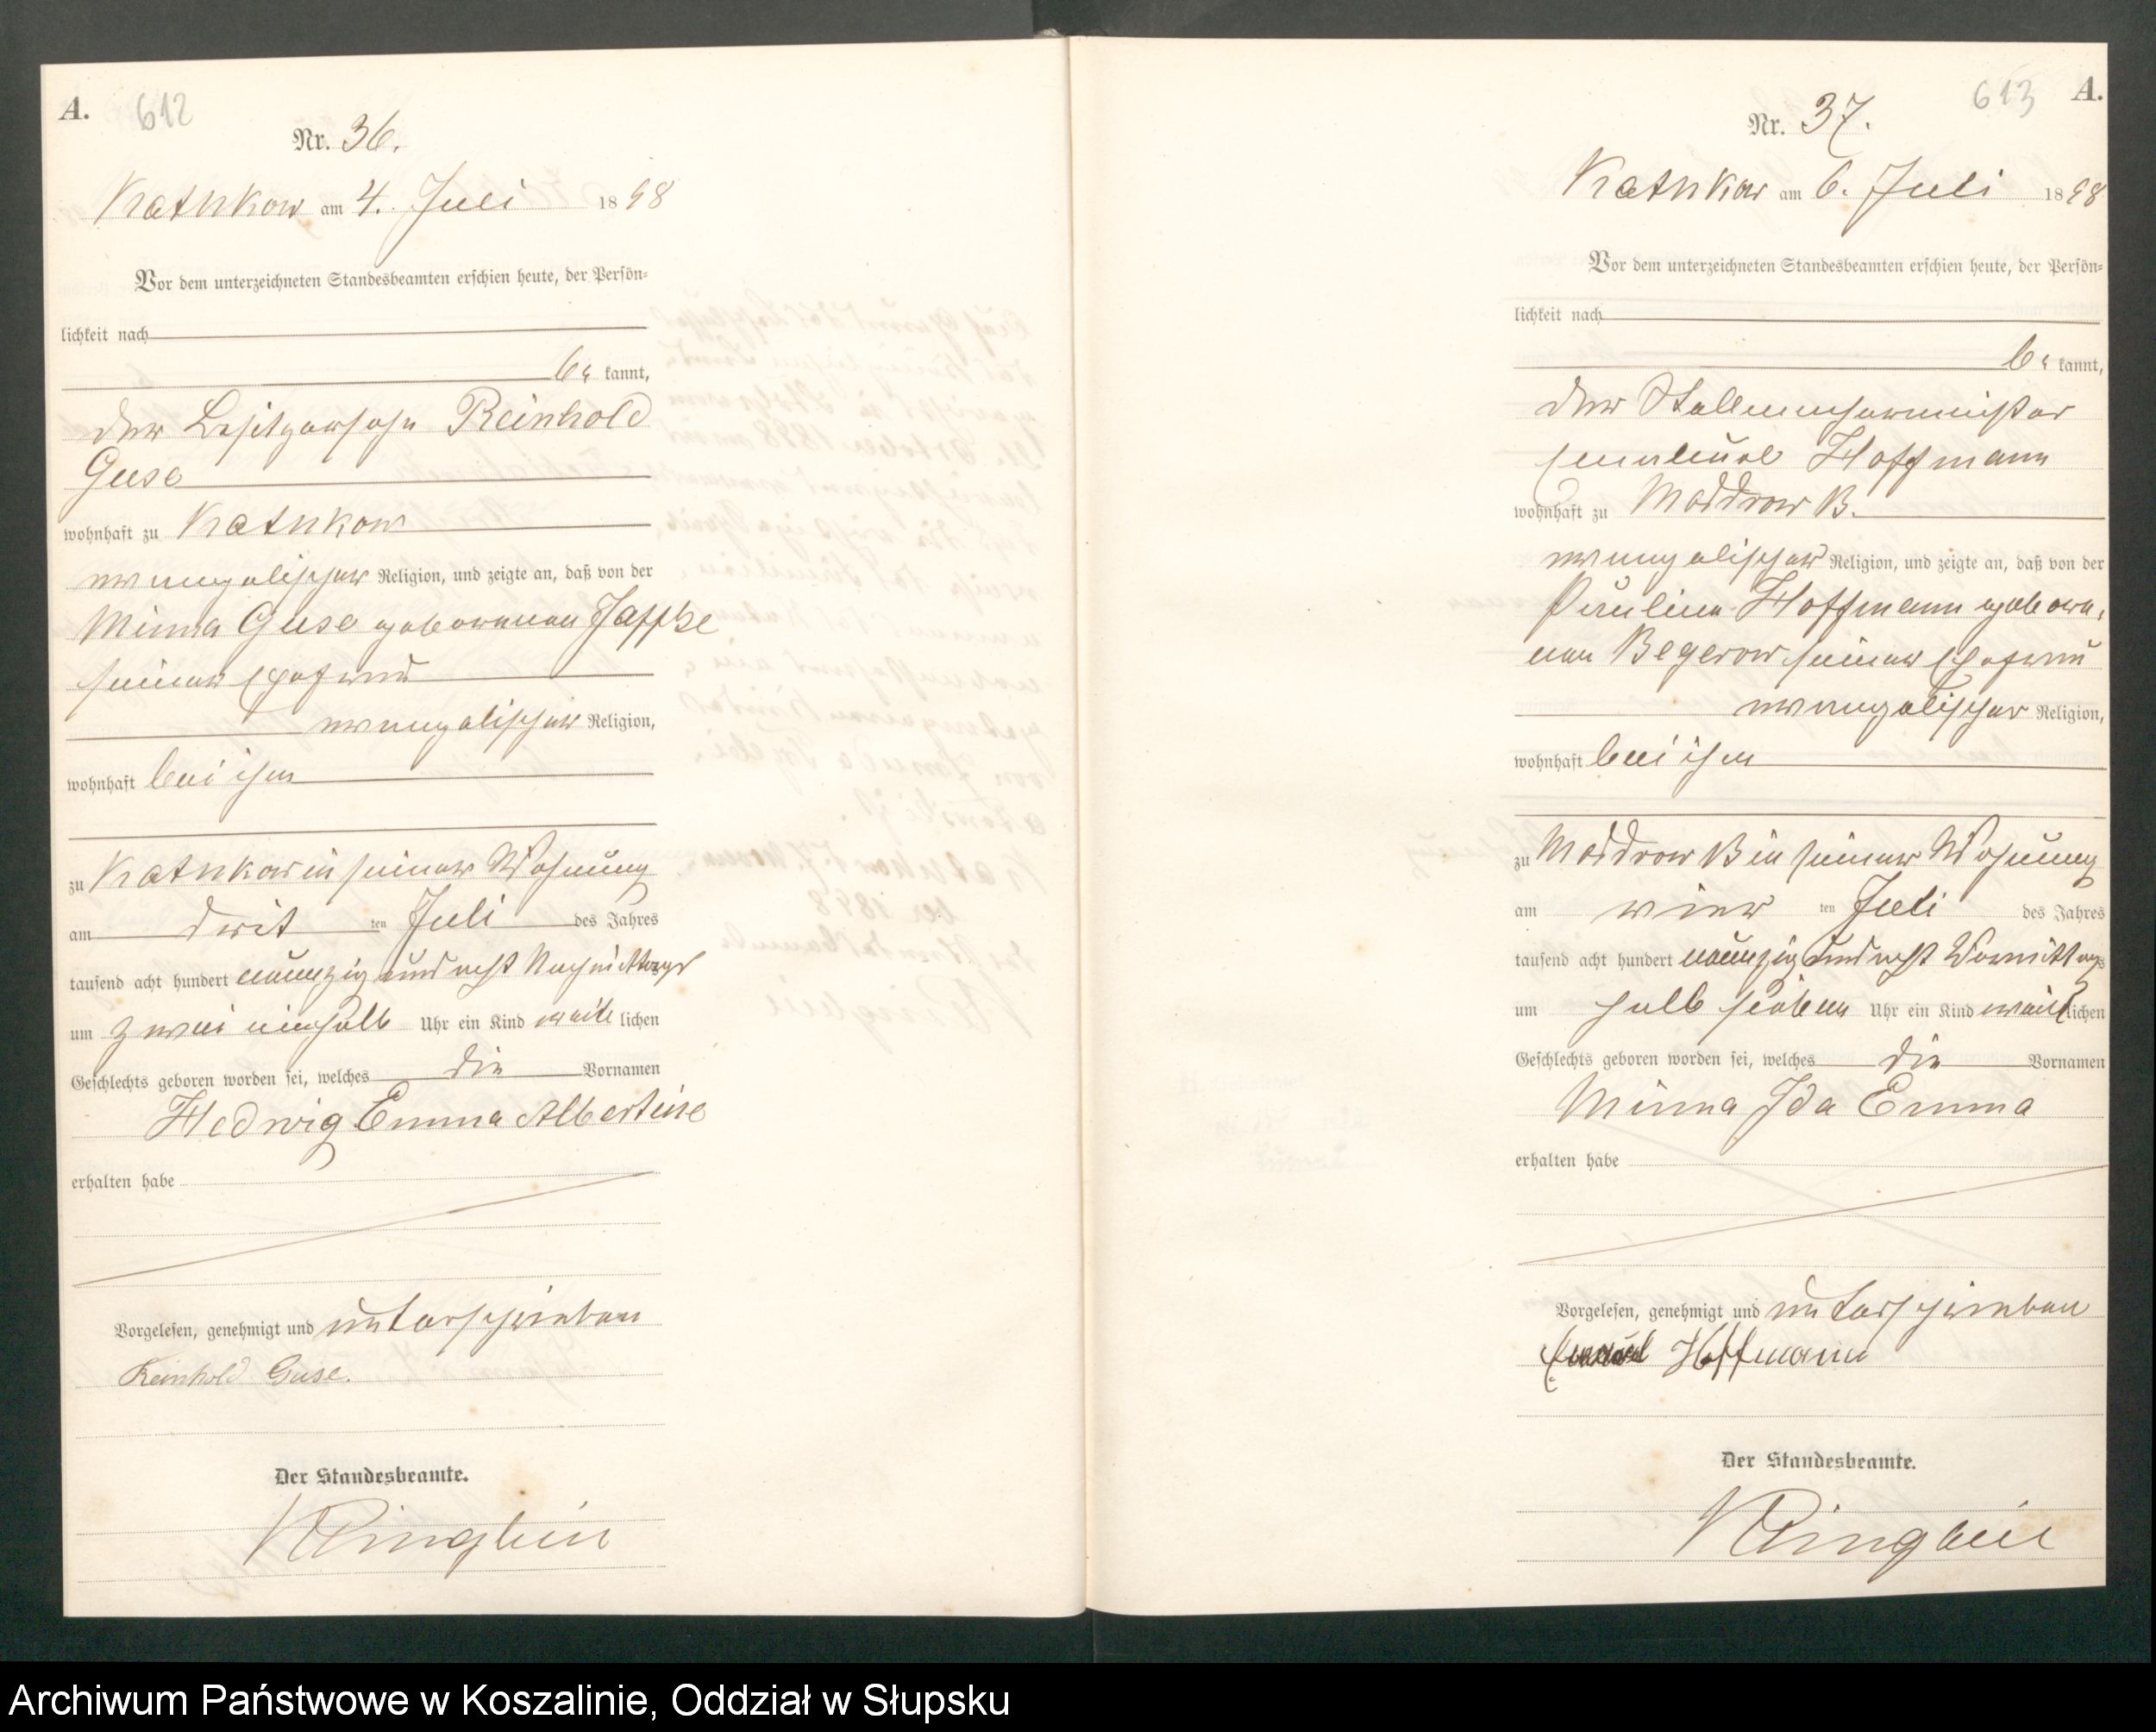 A. 612
Nr. 36.
Katzkow am 4. Juli 1898
Vor dem unterzeichneten Standesbeamten erschien heute, der Persön-
lichkeit nach
be kannt,
der Besitzersohn Reinhold
Guse
wohnhaft zu Katzkow
evangelischer Religion, und zeigte an, daß von der
Minna Guse geborenen Jaffke
seiner Ehefrau
evangelischer Religion,
wohnhaft bei ihm
zu Katzkow in seiner Wohnung
am drit ten Juli des Jahres
tausend acht hundert neunzig und acht Nachmittags
um zwei einhalb Uhr ein Kind weib lichen
Geschlechts geboren worden sei, welches die Vornamen
Hedwig Emma Albertine
erhalten habe
Vorgelesen, genehmigt und unterschrieben
Reinhold Guse.
Der Standesbeamte.
613 A.
Nr. 37.
Katzkow am 6. Juli 1898
Vor dem unterzeichneten Standesbeamten erschien heute, der Persön-
lichkeit nach
be kannt,
der
Hoffmann
wohnhaft zu Moddrow B.
evangelischer Religion, und zeigte an, daß von der
Pauline Hoffmann gebore-
nen Begerow seiner Ehefrau
evangelischer Religion,
wohnhaft bei ihm
zu Moddrow B in seiner Wohnung
am vier ten Juli des Jahres
tausend acht hundert neunzig und acht Vormittags
um halb sieben Uhr ein Kind weib lichen
Geschlechts geboren worden sei, welches die Vornamen
Minna Ida Emma
erhalten habe
Vorgelesen, genehmigt und unterschrieben
Hoffmann
Der Standesbeamte.
Archiwum Państwowe w Koszalinie, Oddział w Słupsku